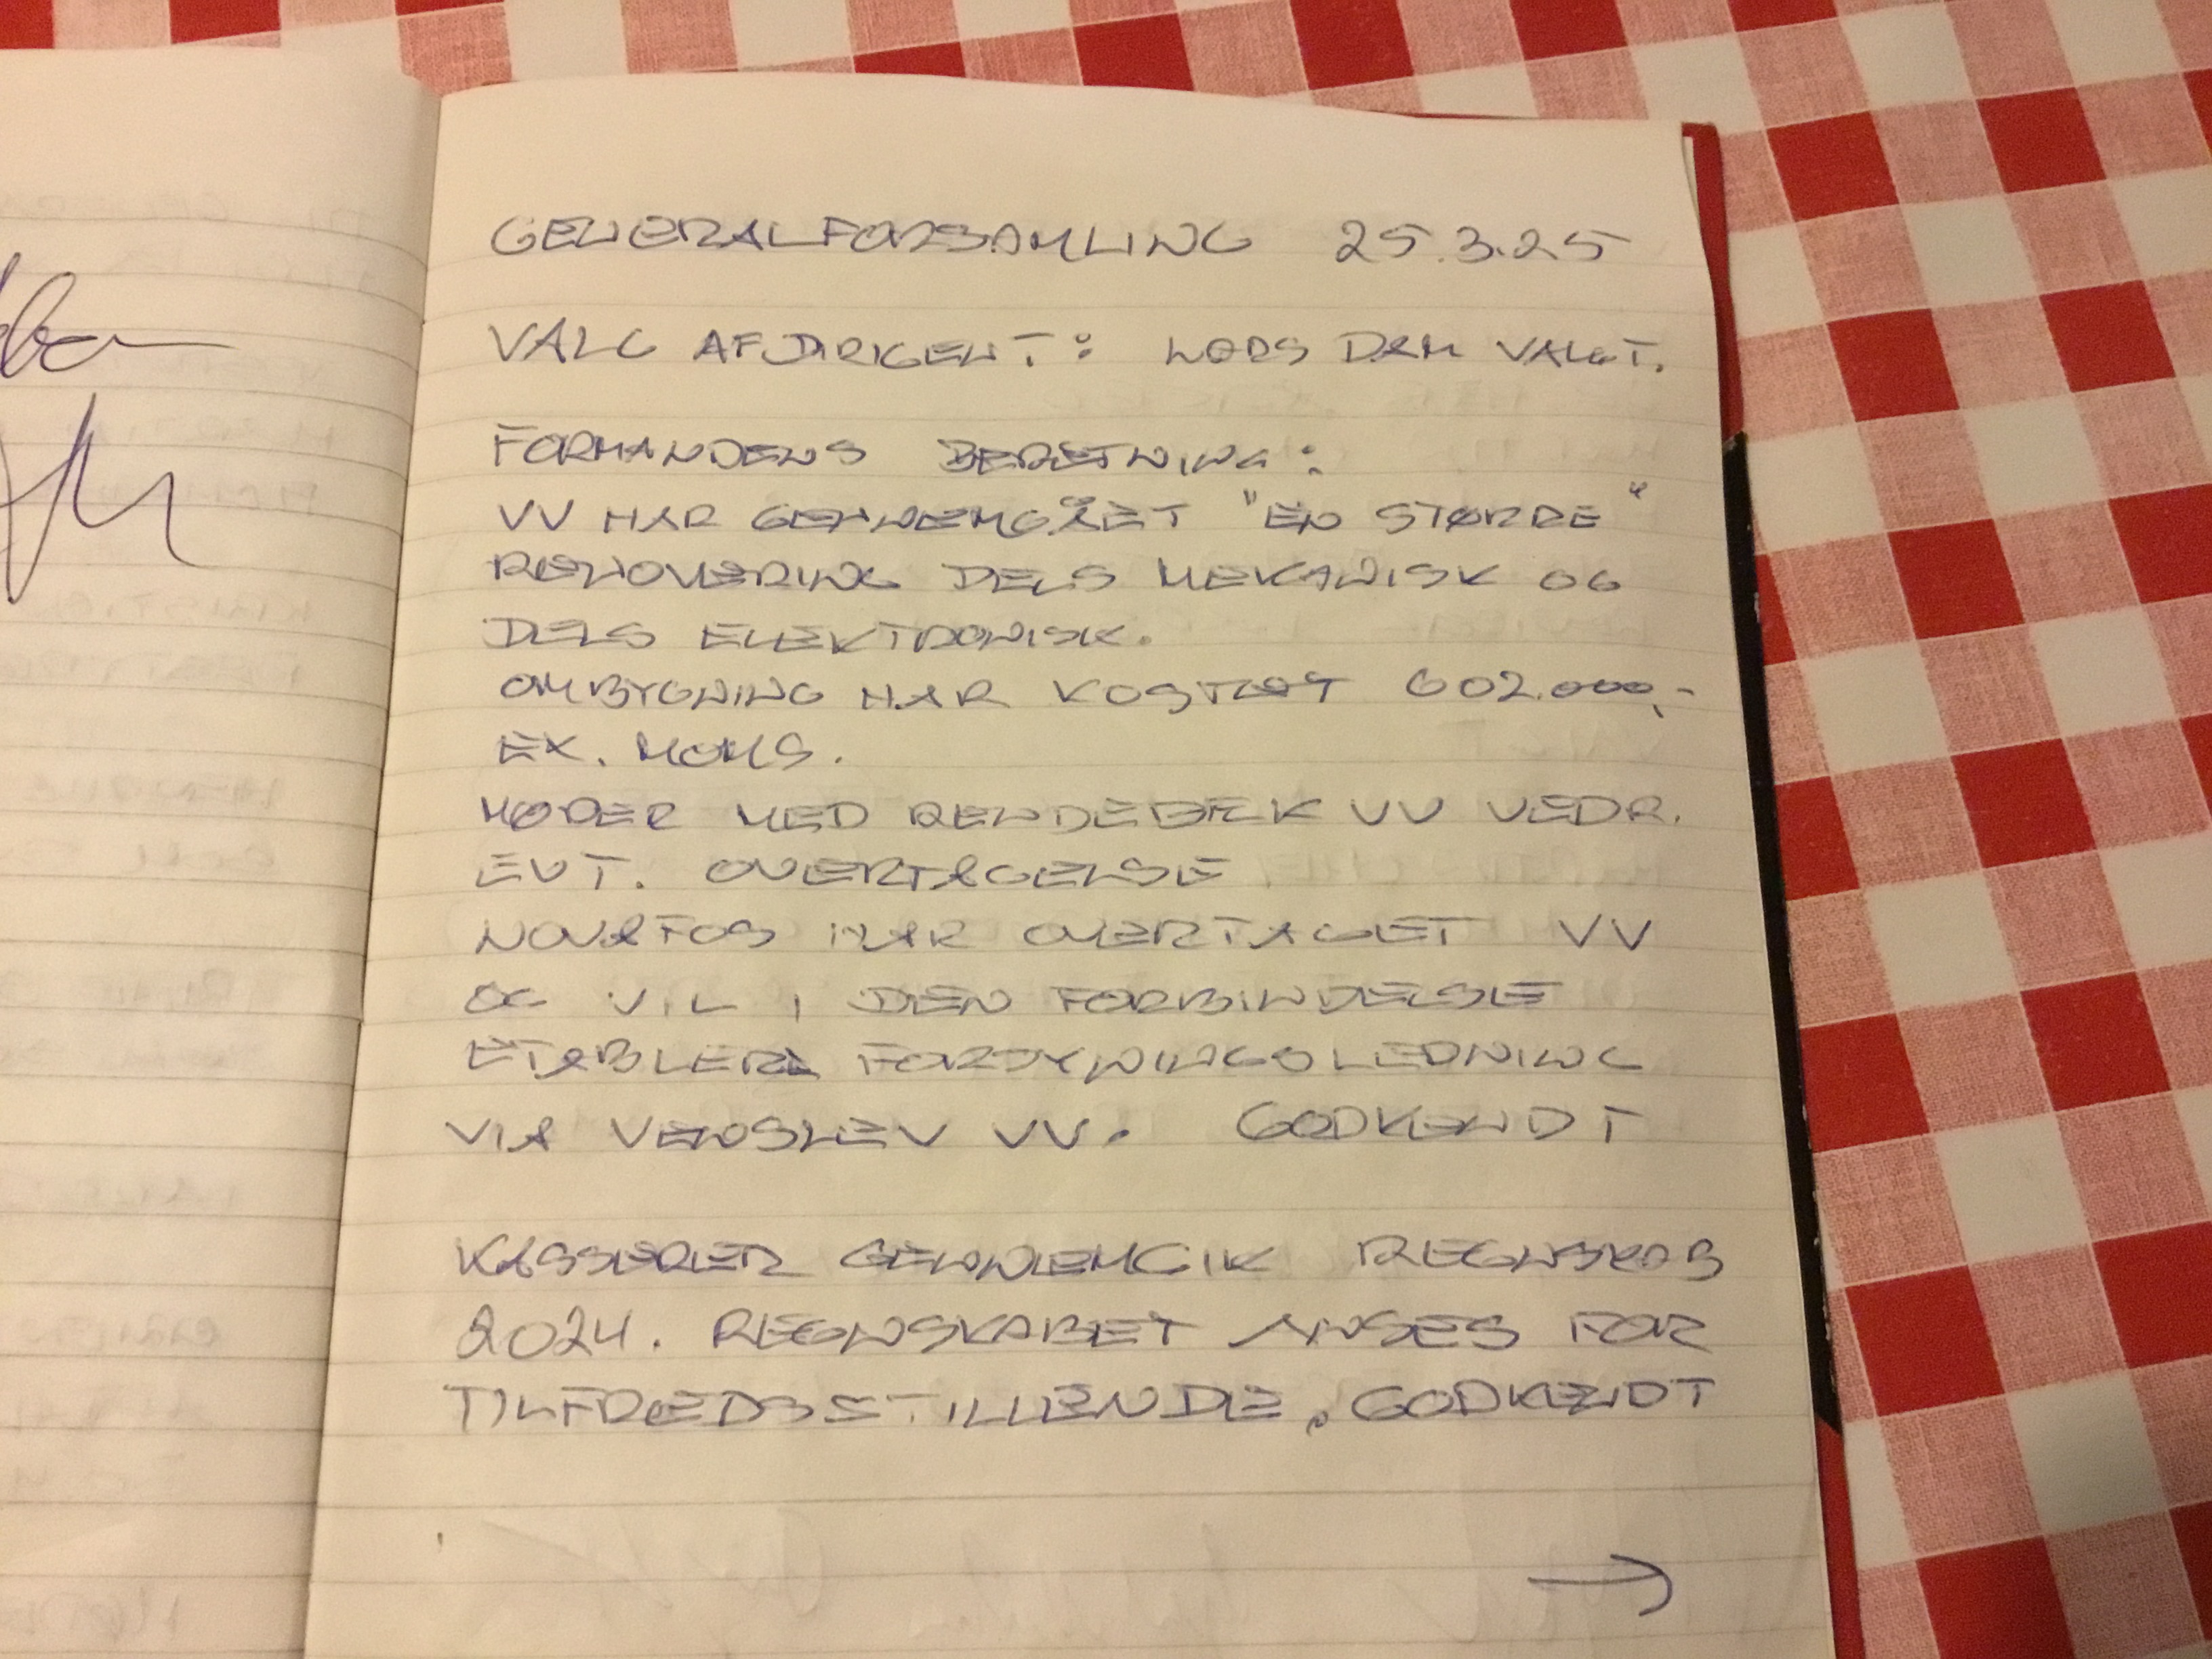 GENERALFORSAMLING 25.3.25
VALG AF DIRIGENT: DAM VALGT.
FORMANDENS BERETNING:
VV HAR GENNEMGÅET "EN STØRRE"
RENOVERING DELS MEKANISK OG
DELS ELEKTRONISK.
OMBYGNING HAR KOSTET 602.000,-
EX. MOMS.
MØDER MED RENDEBÆK VV VEDR.
EVT. OVERTAGELSE
NOVAFOS HAR OVERTAGET VV
OG VIL I DEN FORBINDELSE
ETABLERE FORSYNINGSLEDNING
VIA VENSLEV VV. GODKENDT
KASSERER GENNEMGIK REGNSKAB
2024. REGNSKABET ANSES FOR
TILFREDSSTILLENDE. GODKENDT
→